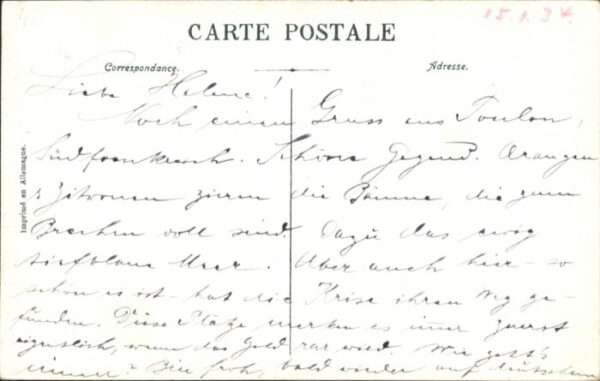 CARTE POSTALE
15.1.34.
Correspondance.
Adresse.
Imprimé en Allemagne.
Liebe Helene!
Noch einen Gruss aus Toulon,
Südfrankreich. Schöne Gegend. Orangen
& Zitronen zieren die Bäume, die zum
Brechen voll sind. Dazu das ewig
tiefblaue Meer. Aber auch hier – so
schön es ist – hat die Krise ihren Weg ge-
funden. Diese Plätze merken es immer zuerst
eigentlich, wenn das Geld rar wird. Wie geht's
immer? Bin froh, bald wieder auf deutschem